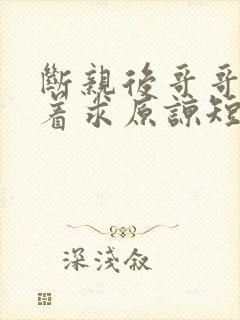 斷親後哥哥
着求原諒短
深淺敘